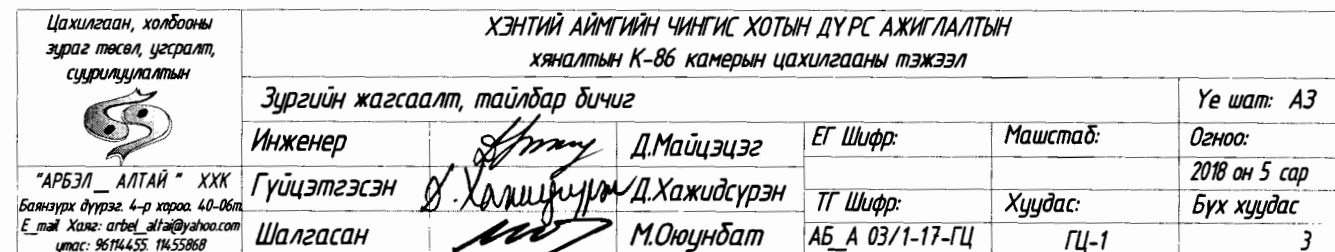 Цахилгаан, холбооны
зураг төсөл, угсралт,
суурилуулалтын
"АРБЭЛ__АЛТАЙ" ХХК
Баянзүрх дүүрэг. 4-р хороо. 40-06т
E_mail Хаяг: arbel_altai@yahoo.com
утас: 96114455. 11455868
ХЭНТИЙ АЙМГИЙН ЧИНГИС ХОТЫН ДҮРС АЖИГЛАЛТЫН
хяналтын К-86 камерын цахилгааны тэжээл
Зургийн жагсаалт, тайлбар бичиг
Үе шат: АЗ
Инженер Д.Майцэцэг ЕГ Шифр: Машстаб: Огноо:
2018 он 5 сар
Гүйцэтгэсэн Д.Хажидсүрэн Д.Хажидсүрэн ТГ Шифр: Хуудас: Бүх хуудас
Шалгасан М.Оюунбат АБ_А 03/1-17-ГЦ ГЦ-1 3